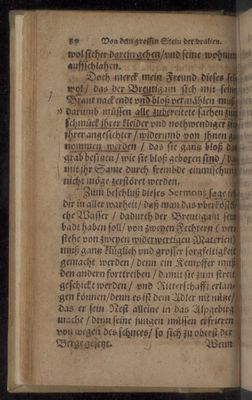 Von dem grossen Stein der uralten.
wol sicher darein gehen/ vnd seine wohnung
auffschlahen.
Doch merck mein Freund dieses sehr
wol/ das der Breutigam sich mit seiner
Braut nackend vnd bloß vermählen muß/
darumb müssen alle zubereitete sachen zum
schmück jhrer kleider vnd nothwendiger zier
jhrer angesichter/ widerumb von jhnen ge-
nommen werden/ das sie gantz bloß das
grab besitzen/ wie sie bloß geboren sind/ da-
mit jhr Same durch frembde einmischung
nicht möge zerstöret werden.
Zum beschluß dieses Sermons sage ich
dir in aller warheit/ daß man das vberköstli-
che Wasser/ dadurch der Breutigam sein
badt haben soll/ von zweyen Fechtern (ver-
stehe von zweyen widerwertigen Materien)
muß gantz klüglich vnd grosser sorgfeltigkeit
gemacht werden/ denn ein Kempffer muß
den andern fortreiben/ damit sie zum streit
geschickt werden/ vnd Ritterschafft erlan-
gen können/ denn es ist dem Adler nit nütze/
das er sein Nest alleine in das Alpgebirg
mache/ denn seine jungen müssen erfrieren
von wegen des schnees/ so sich zu oberst der
Berge gesetzt. Wenn